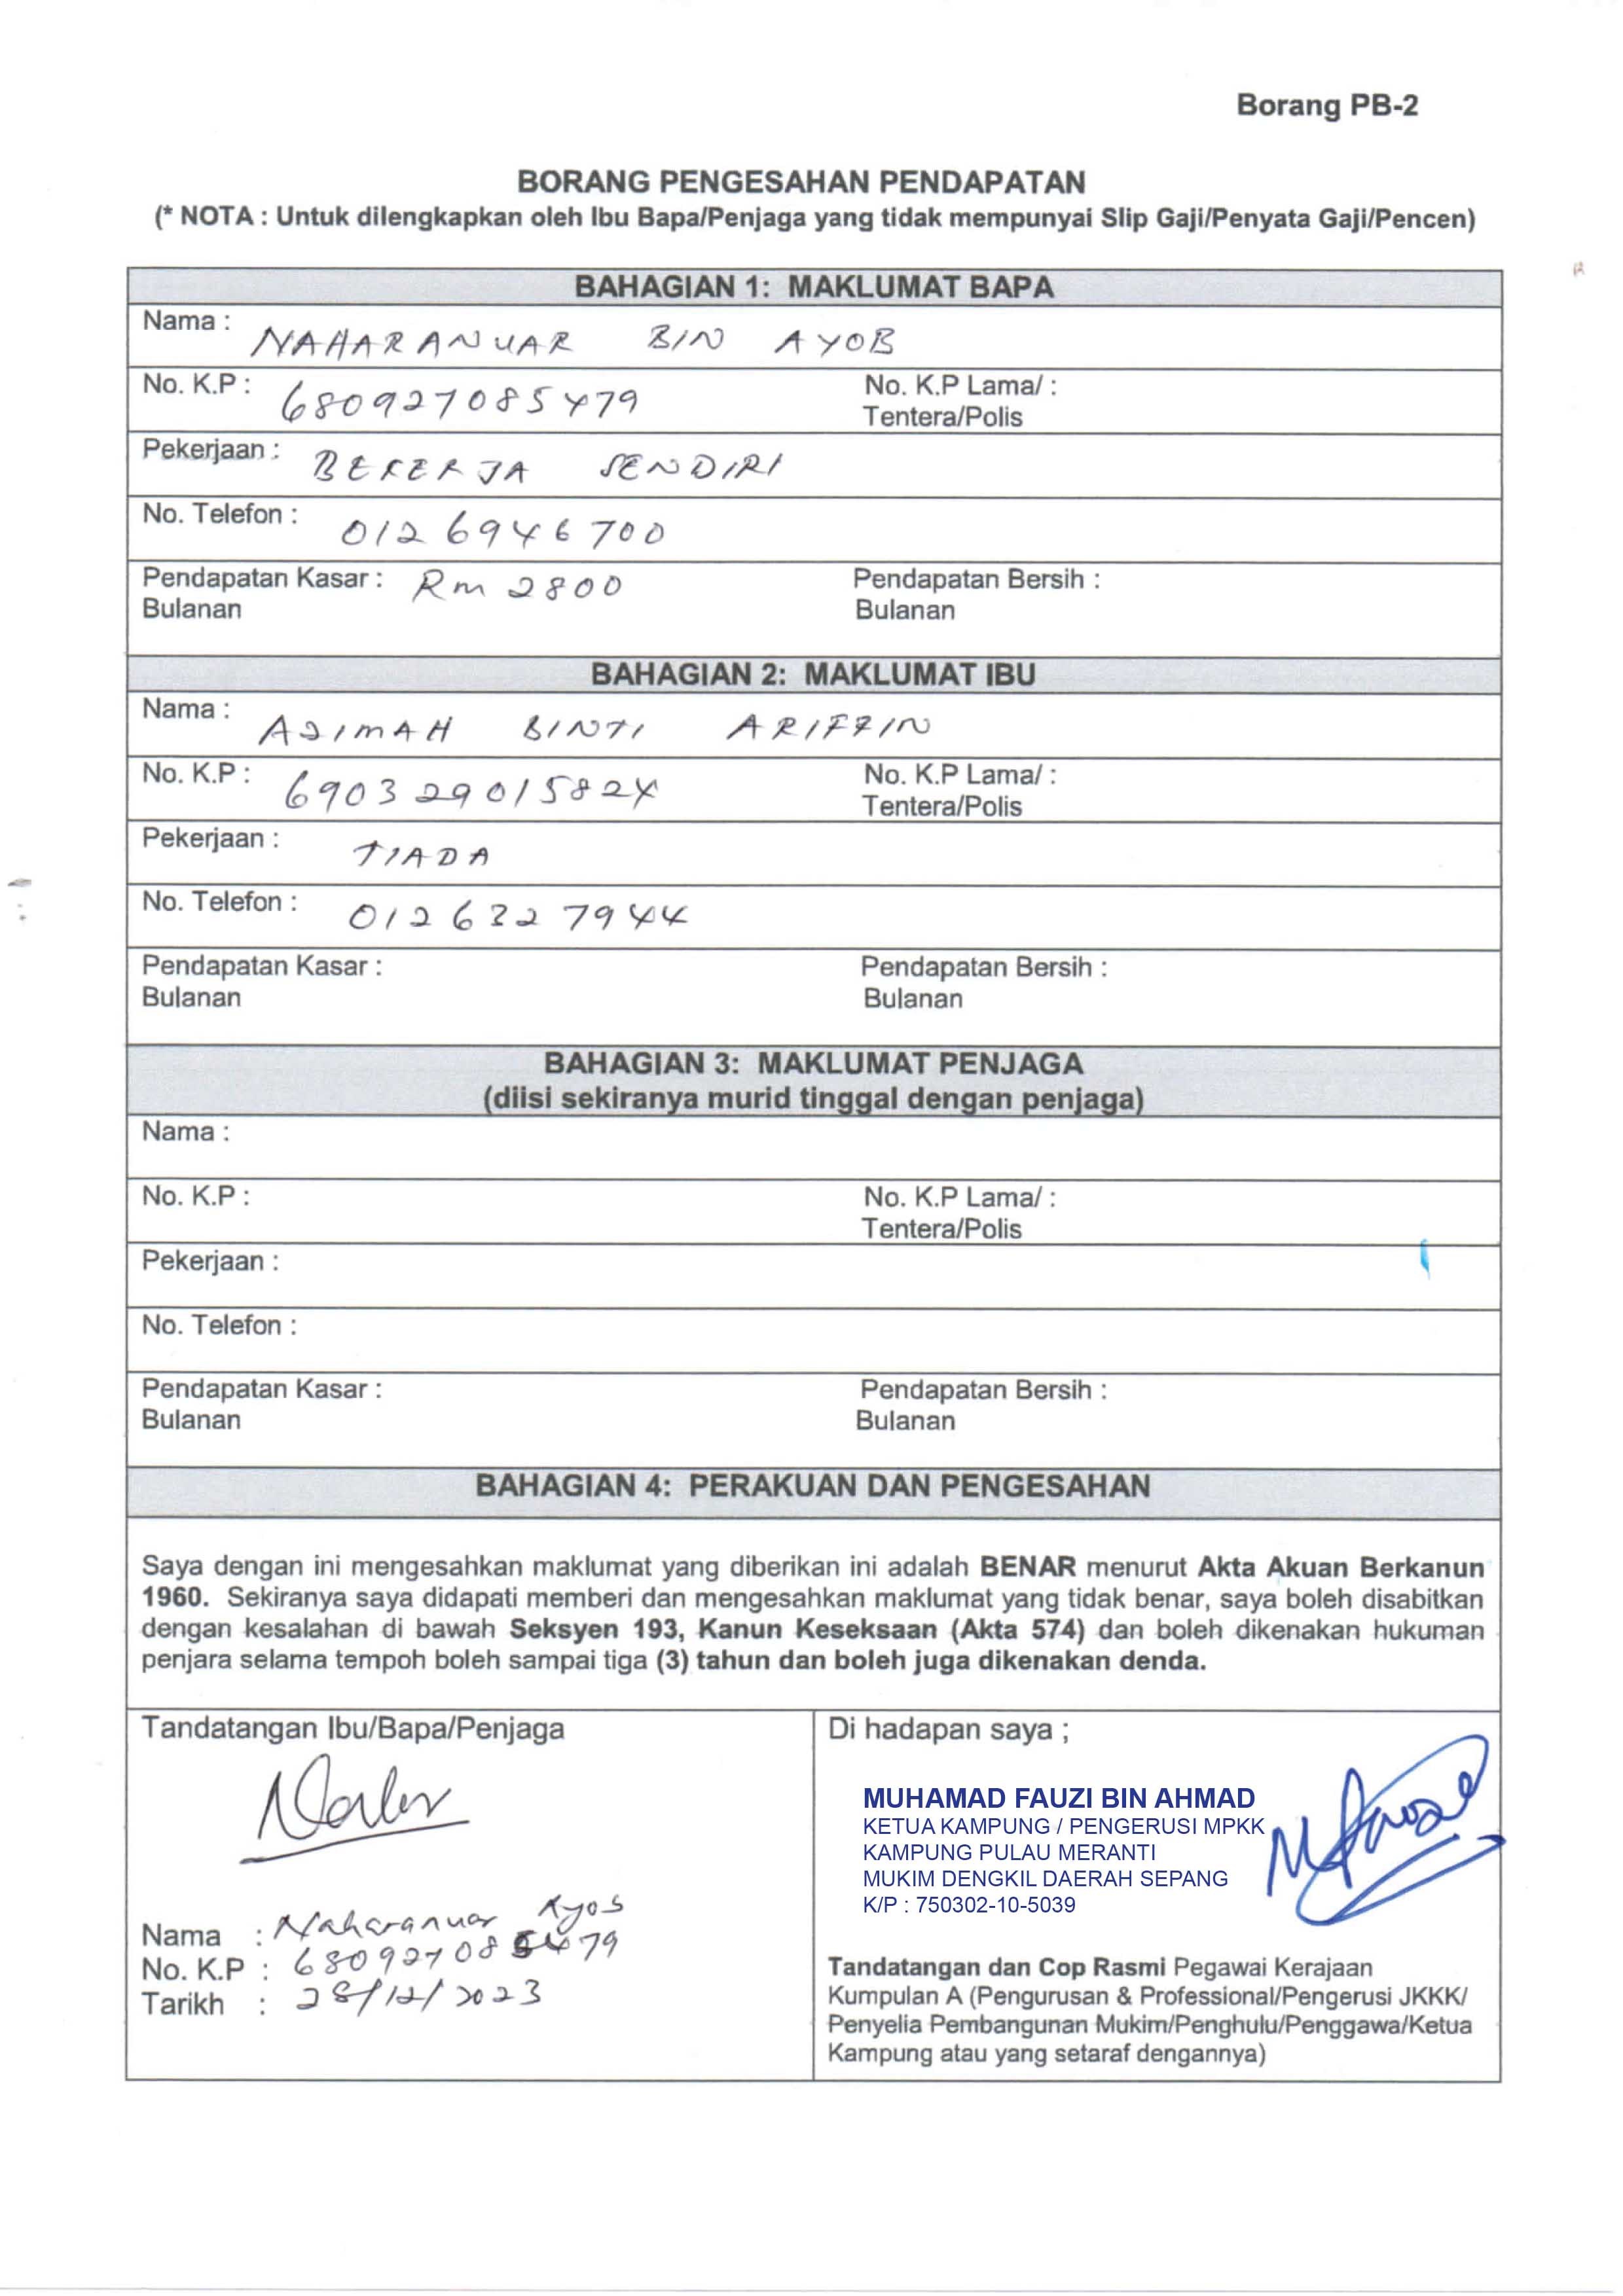 Borang PB-2
BORANG PENGESAHAN PENDAPATAN
(* NOTA : Untuk dilengkapkan oleh Ibu Bapa/Penjaga yang tidak mempunyai Slip Gaji/Penyata Gaji/Pencen)
BAHAGIAN 1: MAKLUMAT BAPA
Nama : NAHARANUAR BIN AYOB
No. K.P : 680927085479 No. K.P Lama/ :
Tentera/Polis
Pekerjaan : BEKERJA SENDIRI
No. Telefon : 0126946700
Pendapatan Kasar : Rm 2800 Pendapatan Bersih :
Bulanan Bulanan
BAHAGIAN 2: MAKLUMAT IBU
Nama : AZIMAH BINTI ARIFFIN
No. K.P : 690329015824 No. K.P Lama/ :
Tentera/Polis
Pekerjaan : TIADA
No. Telefon : 0126327944
Pendapatan Kasar : Pendapatan Bersih :
Bulanan Bulanan
BAHAGIAN 3: MAKLUMAT PENJAGA
(diisi sekiranya murid tinggal dengan penjaga)
Nama :
No. K.P : No. K.P Lama/ :
Tentera/Polis
Pekerjaan :
No. Telefon :
Pendapatan Kasar : Pendapatan Bersih :
Bulanan Bulanan
BAHAGIAN 4: PERAKUAN DAN PENGESAHAN
Saya dengan ini mengesahkan maklumat yang diberikan ini adalah BENAR menurut Akta Akuan Berkanun
1960. Sekiranya saya didapati memberi dan mengesahkan maklumat yang tidak benar, saya boleh disabitkan
dengan kesalahan di bawah Seksyen 193, Kanun Keseksaan (Akta 574) dan boleh dikenakan hukuman
penjara selama tempoh boleh sampai tiga (3) tahun dan boleh juga dikenakan denda.
Tandatangan Ibu/Bapa/Penjaga
Nama : Naharanuar Ayob
No. K.P : 680927085479
Tarikh : 28/12/2023
Di hadapan saya ;
MUHAMAD FAUZI BIN AHMAD
KETUA KAMPUNG / PENGERUSI MPKK
KAMPUNG PULAU MERANTI
MUKIM DENGKIL DAERAH SEPANG
K/P : 750302-10-5039
Tandatangan dan Cop Rasmi Pegawai Kerajaan
Kumpulan A (Pengurusan & Professional/Pengerusi JKKK/
Penyelia Pembangunan Mukim/Penghulu/Penggawa/Ketua
Kampung atau yang setaraf dengannya)